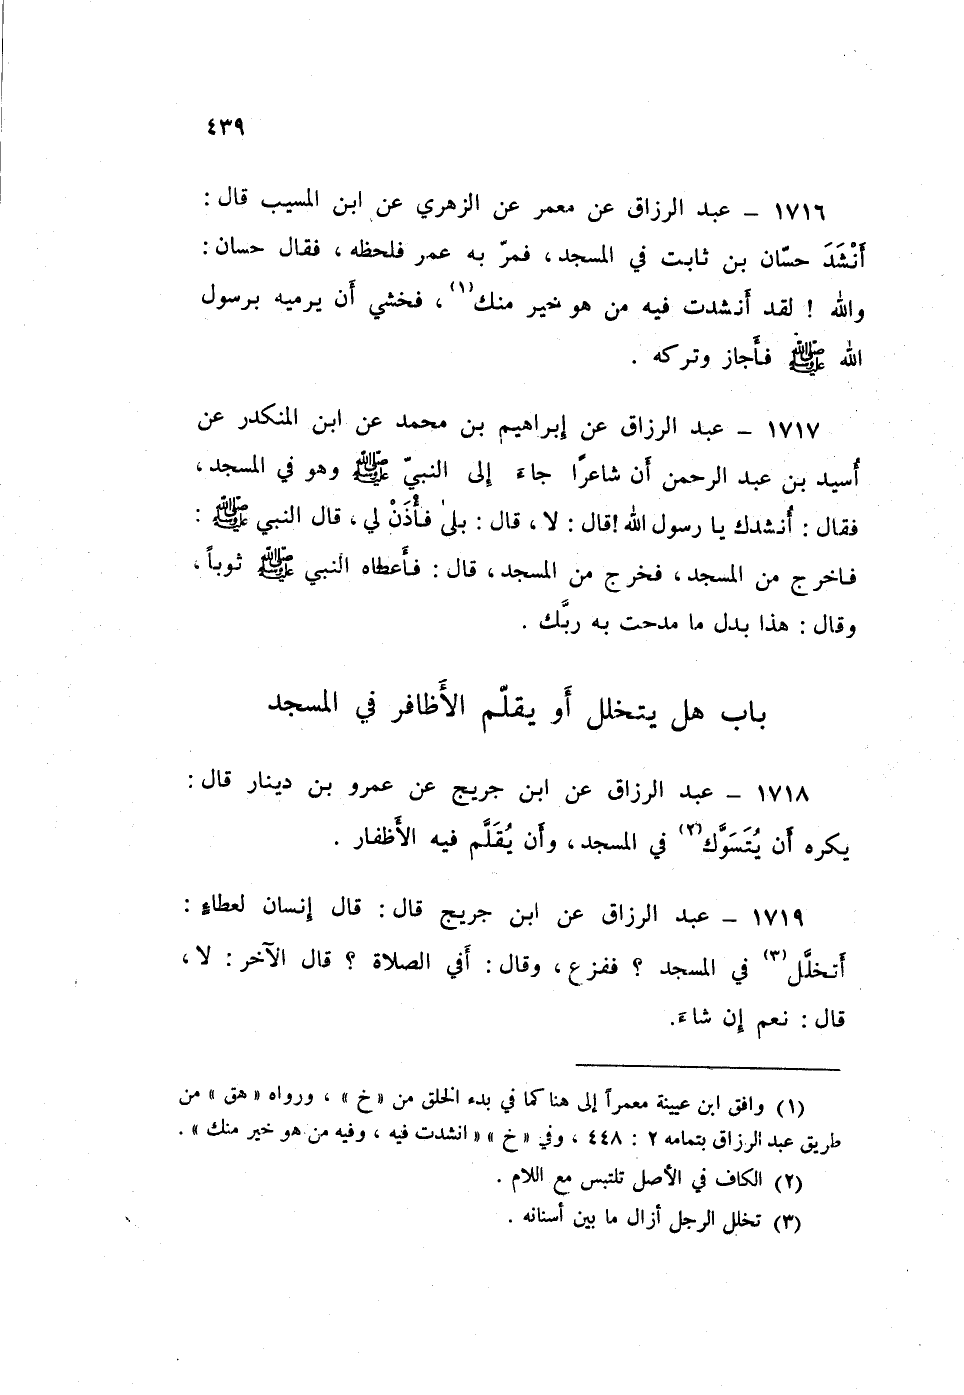 ٤٣٩
١٧١٦ – عبد الرزاق عن معمر عن الزهري عن ابن المسيب قال :
أَنْشَدَ حسّان بن ثابت في المسجد ، فمرّ به عمر فلحظه ، فقال حسان :
والله ! لقد أَنشدت فيه من هو خير منك(١) ، فخشي أَن يرميه برسول
الله ﷺ فأَجاز وتركه .
١٧١٧ – عبد الرزاق عن إبراهيم بن محمد عن ابن المنكدر عن
أُسيد بن عبد الرحمن أَن شاعرًا جاءَ إلى النبيّ ﷺ وهو في المسجد ،
فقال : أُنشدك يا رسول الله !قال : لا ، قال : بلىٰ فأْذَنْ لي ، قال النبي ﷺ :
فاخرج من المسجد ، فخرج من المسجد ، قال : فأَعطاه النبي ﷺ ثوباً ،
وقال : هذا بدل ما مدحت به ربَّك .
باب هل يتخلل أَو يقلّم الأَظافر في المسجد
١٧١٨ – عبد الرزاق عن ابن جريج عن عمرو بن دينار قال :
يكره أَن يُتَسَوَّك(٢) في المسجد ، وأَن يُقَلَّم فيه الأَظفار .
١٧١٩ – عبد الرزاق عن ابن جريج قال : قال إنسان لعطاءٍ :
أَتخلَّل(٣) في المسجد ؟ ففزع ، وقال : أَفي الصلاة ؟ قال الآخر : لا ،
قال : نعم إن شاءَ .
(١) وافق ابن عيينة معمراً إلى هنا كما في بدء الخلق من « خ » ، ورواه « هق » من
طريق عبد الرزاق بتمامه ٢ : ٤٤٨ ، وفي « خ » « انشدت فيه ، وفيه من هو خير منك » .
(٢) الكاف في الأصل تلتبس مع اللام .
(٣) تخلل الرجل أزال ما بين أسنانه .